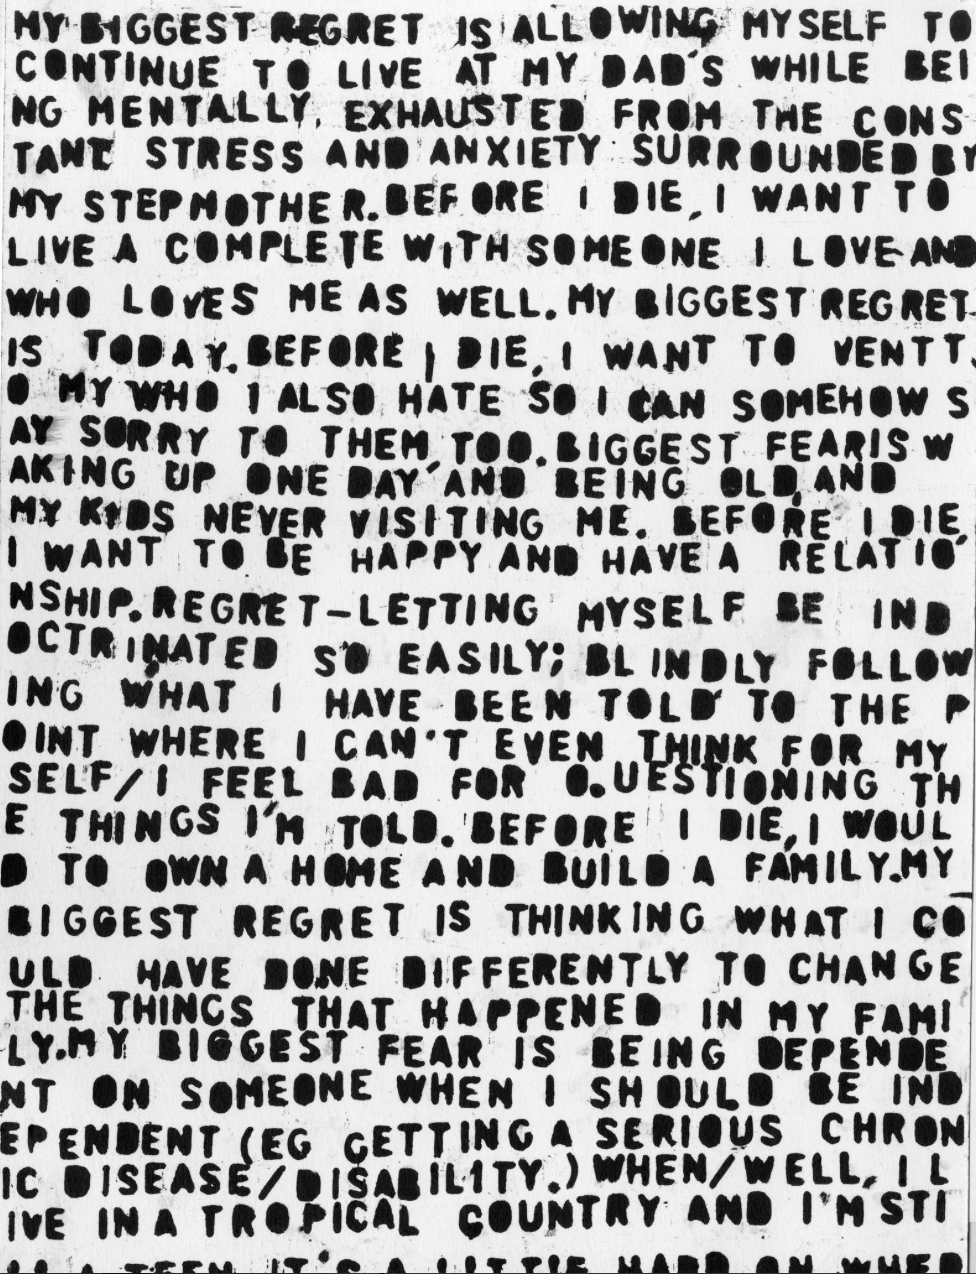 MY BIGGEST REGRET IS ALLOWING MYSELF TO
CONTINUE TO LIVE AT MY DAD'S WHILE BEI
NG MENTALLY, EXHAUSTED FROM THE CONS
TANT STRESS AND ANXIETY SURROUNDED BY
MY STEPMOTHER. BEFORE I DIE, I WANT TO
LIVE A COMPLETE WITH SOMEONE I LOVE AND
WHO LOVES ME AS WELL. MY BIGGEST REGRET
IS TODAY. BEFORE I DIE, I WANT TO VENTT
O MY WHO I ALSO HATE SO I CAN SOMEHOW S
AY SORRY TO THEM TOO. BIGGEST FEAR IS W
AKING UP ONE DAY AND BEING OLD, AND
MY KIDS NEVER VISITING ME. BEFORE I DIE,
I WANT TO BE HAPPY AND HAVE A RELATIO
NSHIP. REGRET-LETTING MYSELF BE IND
OCTRINATED SO EASILY; BLINDLY FOLLOW
ING WHAT I HAVE BEEN TOLD TO THE P
OINT WHERE I CAN'T EVEN THINK FOR MY
SELF/I FEEL BAD FOR QUESTIONING TH
E THINGS I'M TOLD. BEFORE I DIE, I WOUL
D TO OWN A HOME AND BUILD A FAMILY. MY
BIGGEST REGRET IS THINKING WHAT I CO
ULD HAVE DONE DIFFERENTLY TO CHANGE
THE THINGS THAT HAPPENED IN MY FAMI
LY. MY BIGGEST FEAR IS BEING DEPENDE
NT ON SOMEONE WHEN I SHOULD BE IND
EPENDENT (EG GETTING A SERIOUS CHRON
IC DISEASE/DISABILITY.) WHEN/WELL, I L
IVE IN A TROPICAL COUNTRY AND I'M STI
LL A TEEN IT'S A LITTLE HARD ON WHEN